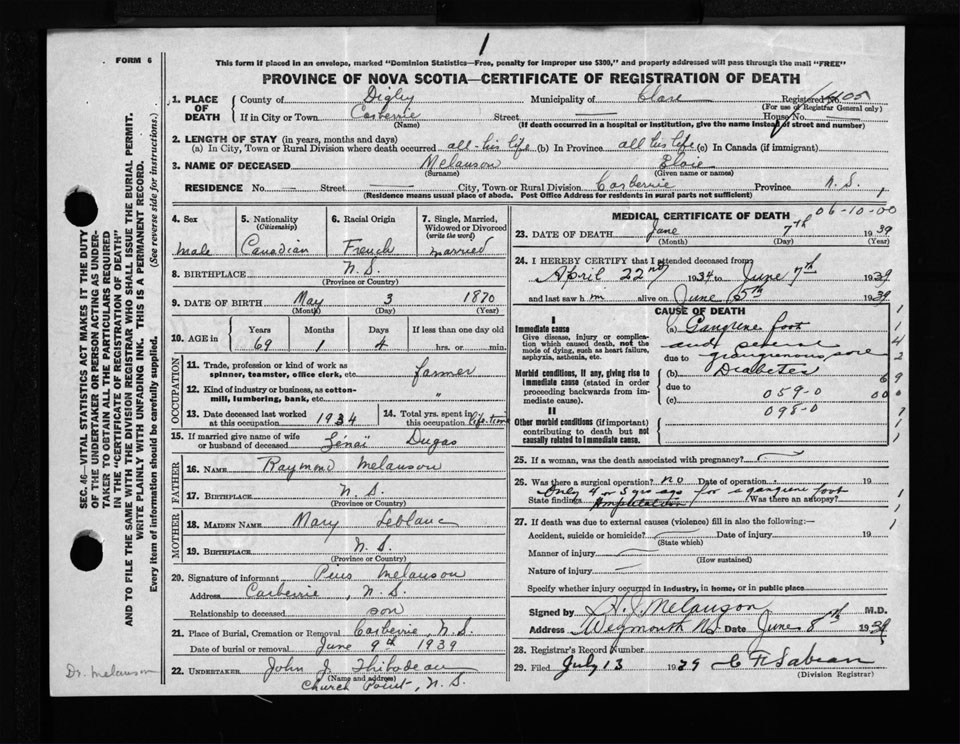 1
FORM 6
This form if placed in an envelope, marked "Dominion Statistics—Free, penalty for improper use $300," and properly addressed will pass through the mail "FREE"
PROVINCE OF NOVA SCOTIA—CERTIFICATE OF REGISTRATION OF DEATH
SEC. 46—VITAL STATISTICS ACT MAKES IT THE DUTY
OF THE UNDERTAKER OR PERSON ACTING AS UNDER-
TAKER TO OBTAIN ALL THE PARTICULARS REQUIRED
IN THE "CERTIFICATE OF REGISTRATION OF DEATH"
AND TO FILE THE SAME WITH THE DIVISION REGISTRAR WHO SHALL ISSUE THE BURIAL PERMIT.
WRITE PLAINLY WITH UNFADING INK. THIS IS A PERMANENT RECORD.
Every item of information should be carefully supplied. (See reverse side for instructions.)
Dr. Melanson
1. PLACE OF DEATH County of Digby Municipality of Clare Registered No. 1405
(For use of Registrar General only)
If in City or Town Corberrie Street — House No. —
(Name) (If death occurred in a hospital or institution, give the name instead of street and number)
2. LENGTH OF STAY (in years, months and days)
(a) In City, Town or Rural Division where death occurred all-his life (b) In Province all his life (c) In Canada (if immigrant)
3. NAME OF DECEASED Melanson Eloie
(Surname) (Given name or names)
RESIDENCE No. — Street — City, Town or Rural Division Corberrie Province N.S.
(Residence means usual place of abode. Post Office Address for residents in rural parts not sufficient)
4. Sex 5. Nationality 6. Racial Origin 7. Single, Married, Widowed or Divorced
(Citizenship) (write the word)
male Canadian French married
8. BIRTHPLACE N.S.
(Province or Country)
9. DATE OF BIRTH May 3 1870
(Month) (Day) (Year)
10. AGE in Years Months Days If less than one day old
69 1 4 hrs. or min.
OCCUPATION
11. Trade, profession or kind of work as spinner, teamster, office clerk, etc. farmer
12. Kind of industry or business, as cotton-mill, lumbering, bank, etc. "
13. Date deceased last worked at this occupation 1934 14. Total yrs. spent in this occupation life time
15. If married give name of wife or husband of deceased Dugas
FATHER
16. NAME Raymond Melanson
17. BIRTHPLACE N.S.
MOTHER
18. MAIDEN NAME Mary Leblanc
19. BIRTHPLACE N.S.
(Province or Country)
20. Signature of informant Pius Melanson
Address Corberrie, N.S.
Relationship to deceased son
21. Place of Burial, Cremation or Removal Corberrie, N.S.
Date of burial or removal June 9th 1939
22. UNDERTAKER John J. Thibodeau
(Name and address)
Church Point, N.S.
MEDICAL CERTIFICATE OF DEATH 06-10-00
23. DATE OF DEATH June 7th 1939
(Month) (Day) (Year)
24. I HEREBY CERTIFY that I attended deceased from
April 22nd 1934 to June 7th 1939
and last saw him alive on June 5th 1939
CAUSE OF DEATH
I
Immediate cause
Give disease, injury or complication which caused death, not the mode of dying, such as heart failure, asphyxia, asthenia, etc.
(a) Gangrene foot
and several
due to grangrenous sore
Morbid conditions, if any, giving rise to immediate cause (stated in order proceeding backwards from immediate cause).
(b) Diabetes
due to 059-0
(c) 098-0
II
Other morbid conditions (if important) contributing to death but not causally related to I immediate cause.
25. If a woman, was the death associated with pregnancy?
26. Was there a surgical operation? no Date of operation 19
Only 4 or 5 yrs ago for a gangrene foot
State findings Amputation Was there an autopsy?
27. If death was due to external causes (violence) fill in also the following:—
Accident, suicide or homicide? Date of injury 19
(State which)
Manner of injury
(How sustained)
Nature of injury
Specify whether injury occurred in industry, in home, or in public place
Signed by H. J. Melanson M.D.
Address Weymouth N.S. Date June 8th 1939
28. Registrar's Record Number
29. Filed July 13 1939 C F Sabean
(Division Registrar)